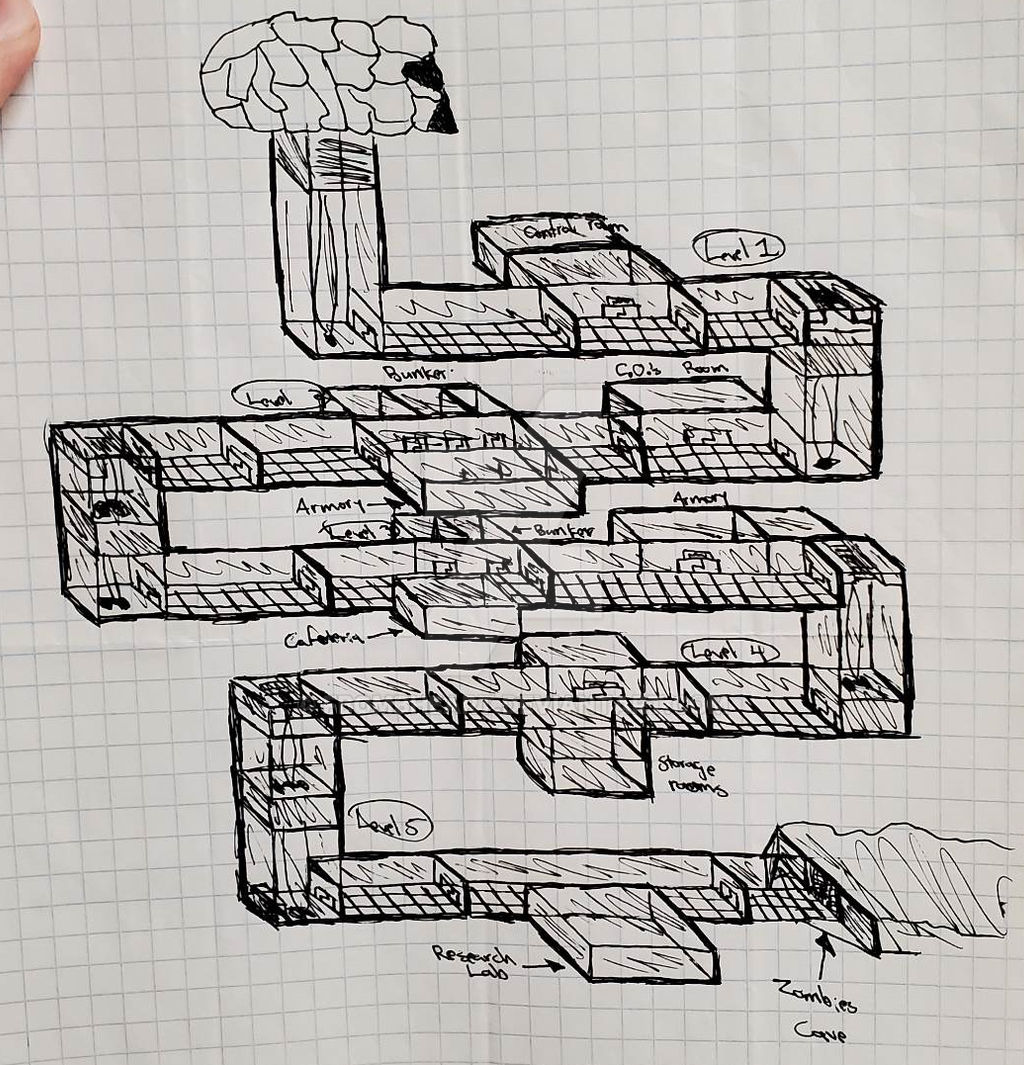 Control room
Level 1
Bunker
C.O.'s Room
Level
Armory
Armory
Level 3
Bunker
Cafeteria
Level 4
Storage
rooms
Level 5
Research
Lab
Zombies
Cave